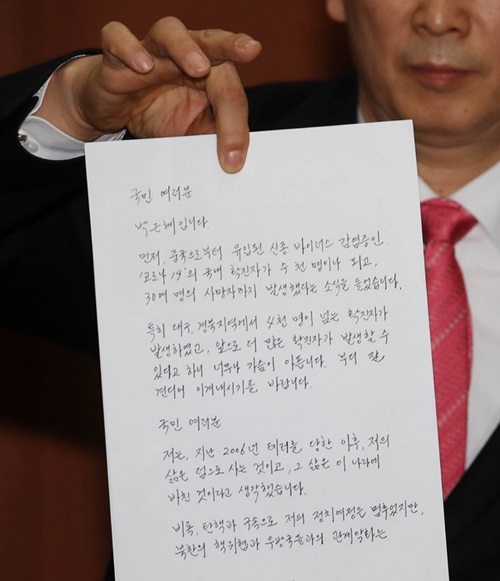 국민 여러분
박근혜입니다
먼저, 중국으로부터 유입된 신종 바이러스 감염증인.
'코로나 19'의 국내 확진자가 수 천 명이나 되고,
30여 명의 사망자까지 발생했다는 소식을 들었습니다.
특히 대구, 경북지역에서 4천 명이 넘는 확진자가
발생하였고, 앞으로 더 많은 확진자가 발생할 수
있다고 하니 너무나 가슴이 아픕니다. 부디 잘
견디어 이겨내시기를 바랍니다.
국민 여러분
저는, 지난 2006년 테러를 당한 이후, 저의
삶은 덤으로 사는 것이고, 그 삶은 이 나라에
바친 것이라고 생각했습니다.
비록, 탄핵과 구속으로 저의 정치여정은 멈추었지만,
북한의 핵위협과 우방국들과의 관계악화는